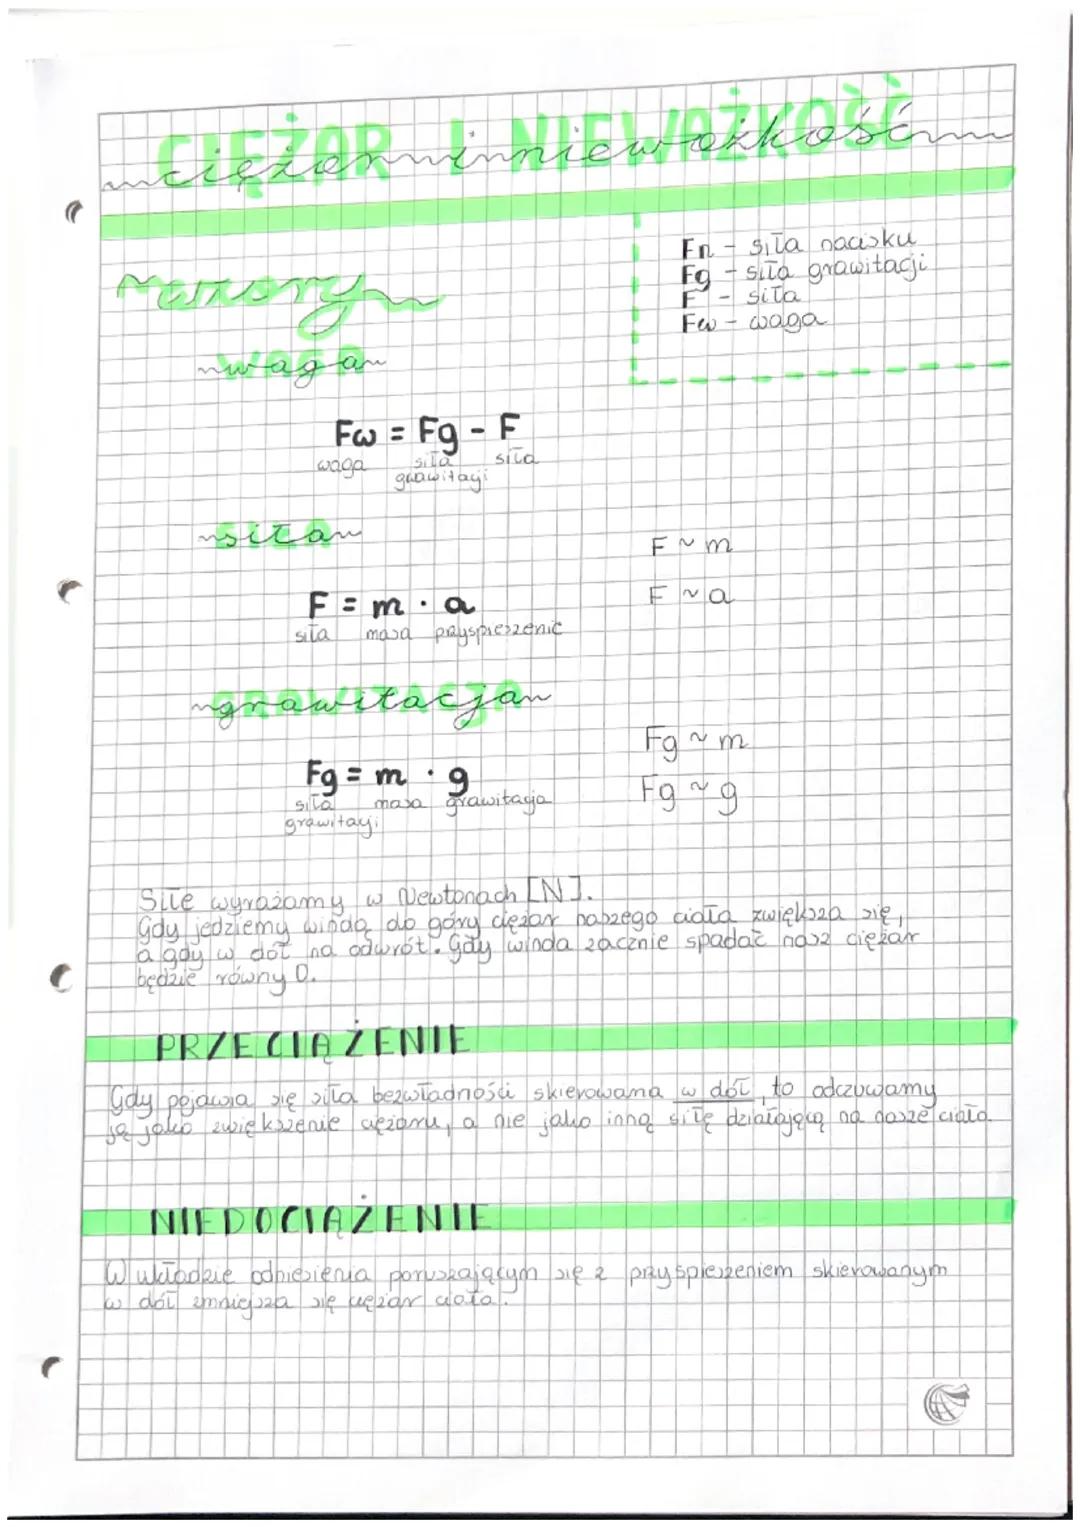 CIĘŻAR I NIEWAŻKOŚĆ
ciężar i nieważkość
Fn - siła nacisku
Fg - siła grawitacji
F - siła
Fw - waga
wzory
waga
Fw = Fg - F
waga siła grawitacji siła
siła
F ~ m
F ~ a
F = m · a
siła masa przyspieszenie
grawitacja
Fg ~ m
Fg ~ g
Fg = m · g
siła grawitacji masa grawitacja
Siłe wyrażamy w Newtonach [N].
Gdy jedziemy windą do góry ciężar naszego ciała zwiększa się,
a gdy w dół na odwrót. Gdy winda zacznie spadać nasz ciężar
będzie równy 0.
PRZECIĄŻENIE
Gdy pojawia się siła bezwładności skierowana w dół, to odczuwamy
ją jako zwiększenie ciężaru, a nie jako inną siłę działającą na nasze ciało.
NIEDOCIĄŻENIE
W układzie odniesienia poruszającym się z przyspieszeniem skierowanym
w dół zmniejsza się ciężar ciała.